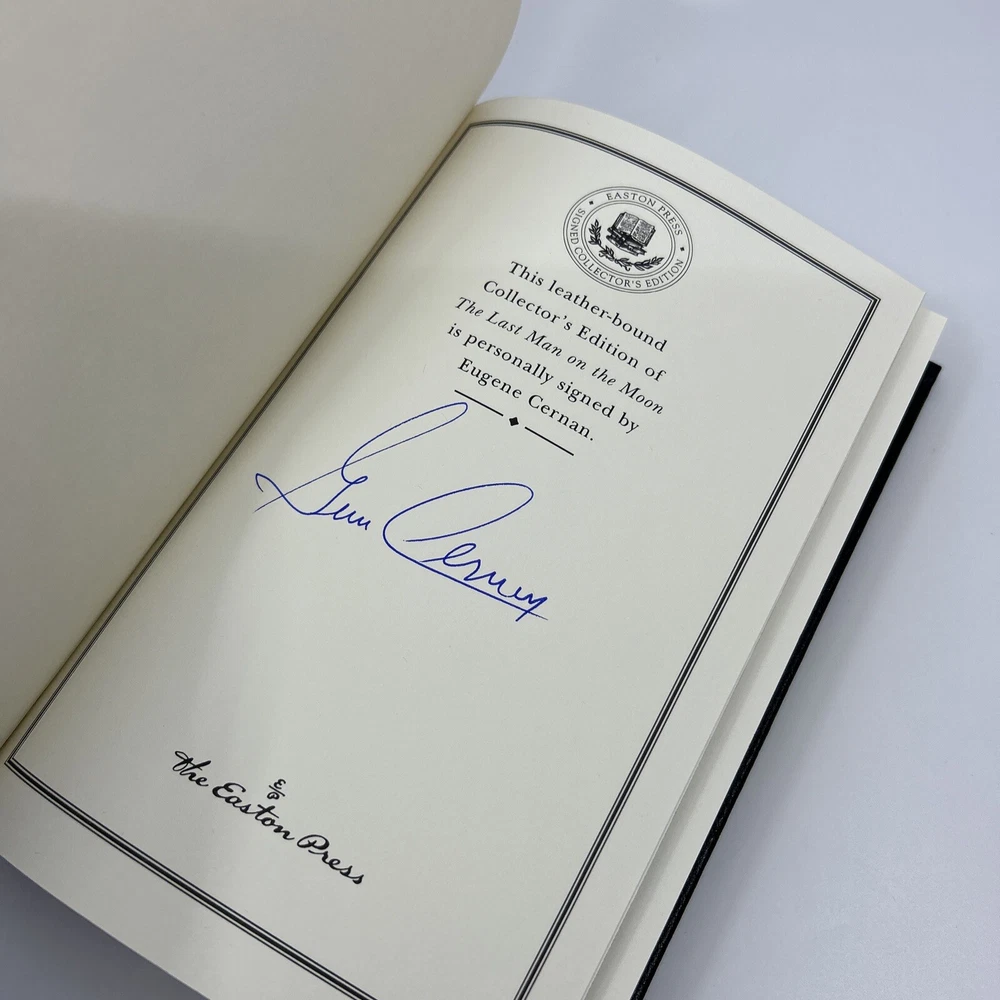 EASTON PRESS
SIGNED COLLECTOR'S EDITION
This leather-bound
Collector's Edition of
The Last Man on the Moon
is personally signed by
Eugene Cernan.
Gene Cernan
EP
The Easton Press